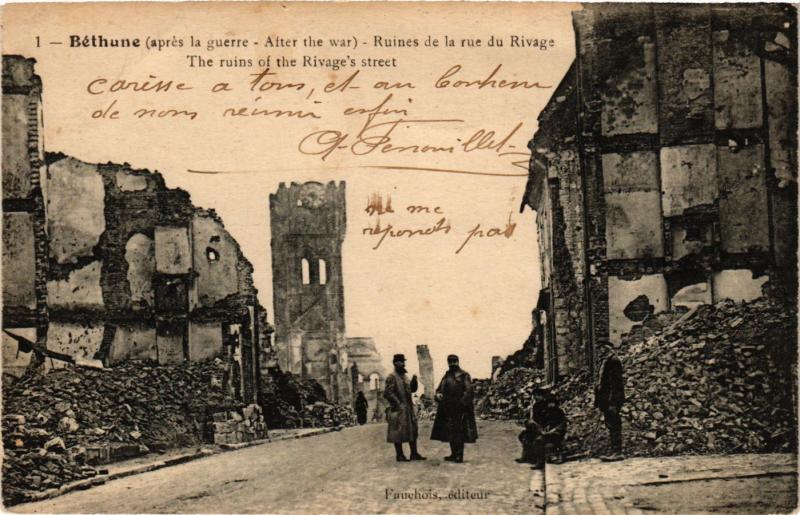 1 — Béthune (après la guerre - After the war) - Ruines de la rue du Rivage
The ruins of the Rivage's street
caresse a tous, et au bonheur
de nous réunir enfin
Fenouillet
ne me
reponds pas
Fauchois, éditeur